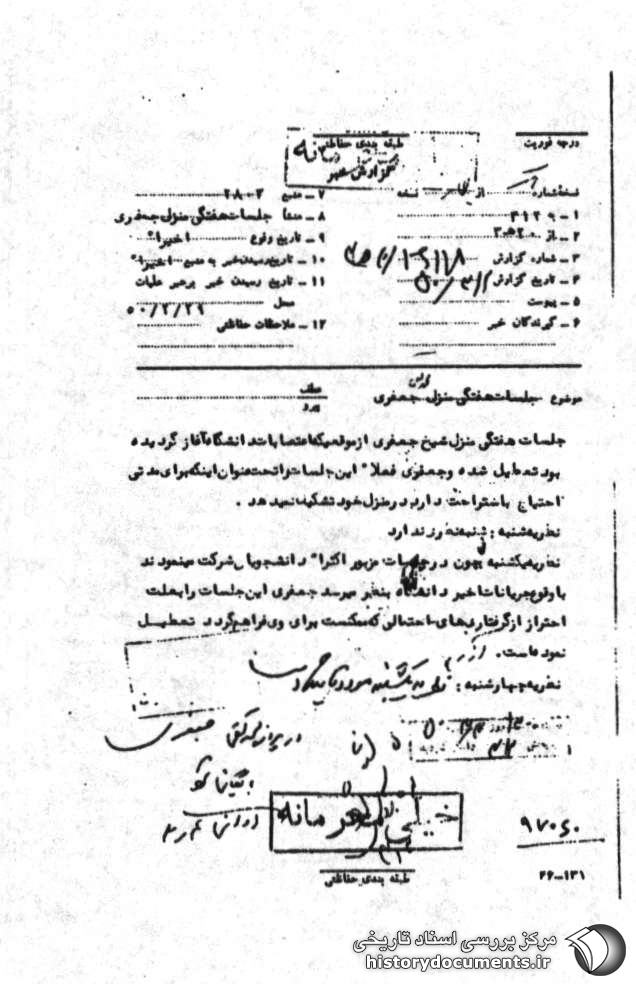 درجه فوریت
طبقه بندی حفاظتی
گزارش خبر
نسخه شماره از نسخه
۱ـ ۳۱۲۹
۲ـ از ۲۰ﻫ۳
۳ـ شماره گزارش
۴ـ تاریخ گزارش
۵ـ پیوست
۶ـ گیرندگان خبر
۷ـ منبع ۲۸۰۳
۸ـ منشأ جلسات هفتگی منزل جعفری
۹ـ تاریخ وقوع اخیراً
۱۰ـ تاریخ رسیدن خبر به منبع اخیراً
۱۱ـ تاریخ رسیدن خبر برهبر عملیات
محل ۵۰/۲/۲۹
۱۲ـ ملاحظات حفاظتی
موضوع جلسات هفتگی منزل جعفری
عطف
پیرو
جلسات هفتگی منزل شیخ جعفری از موقعیکه اعتصابات دانشگاه آغاز گردیده
بود تعطیل شده و جعفری فعلا" این جلسات را تحت عنوان اینکه برای مدتی
احتیاج باستراحت دارد در منزل خود تشکیل نمیدهد .
نظریه شنبه : شنبه نظری ندارد
نظریه یکشنبه چون در جلسات مزبور اکثرا" دانشجویان شرکت مینمودند
با وقوع جریانات اخیر دانشگاه بنظر میرسد جعفری این جلسات را بعلت
احتراز از گرفتاری های احتمالی که ممکنست برای وی فراهم گردد تعطیل
نموده است .
نظریه چهارشنبه : نظریه یکشنبه مورد تایید است
خیلی محرمانه
طبقه بندی حفاظتی
۹۷۰۶۰
۲۶ـ۱۳۱
مرکز بررسی اسناد تاریخی
historydocuments.ir